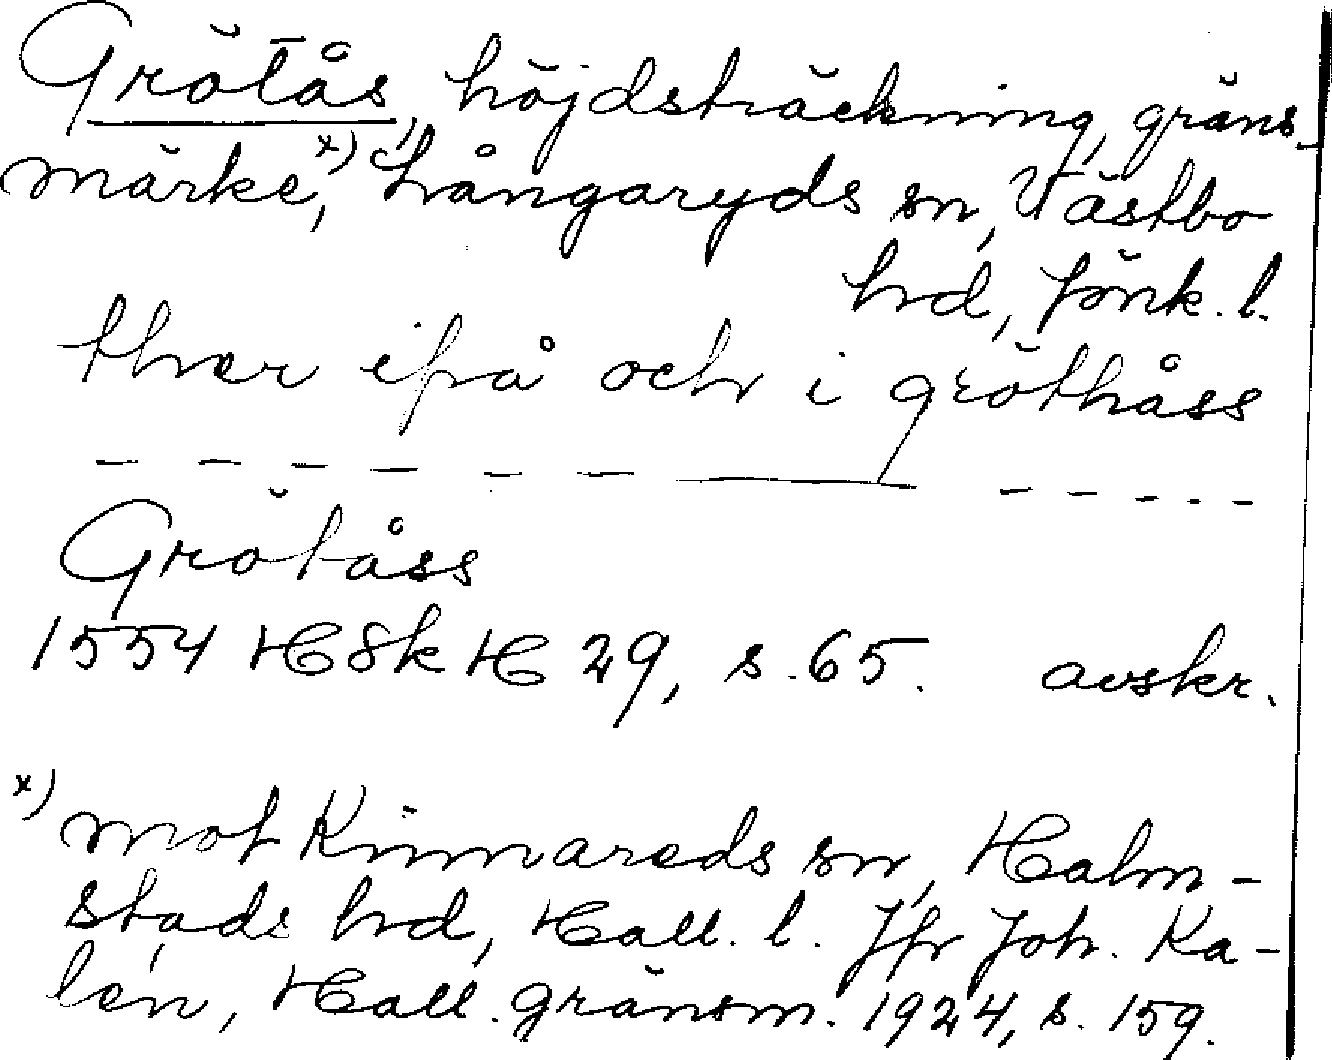 Grötås, höjdsträckning, gräns-
märke,x) Långaryds sn, Västbo
hrd, Jönk. l.
ther ifrå och i gröthåss
— — — — — — —— — — — — —
Grötåss
1554 HSkH 29, s. 65. avskr.
x) mot Kinnareds sn, Halm-
stads hrd, Hall. l. Jfr Joh. Ka-
lén, Hall. gränsm. 1924, s. 159.